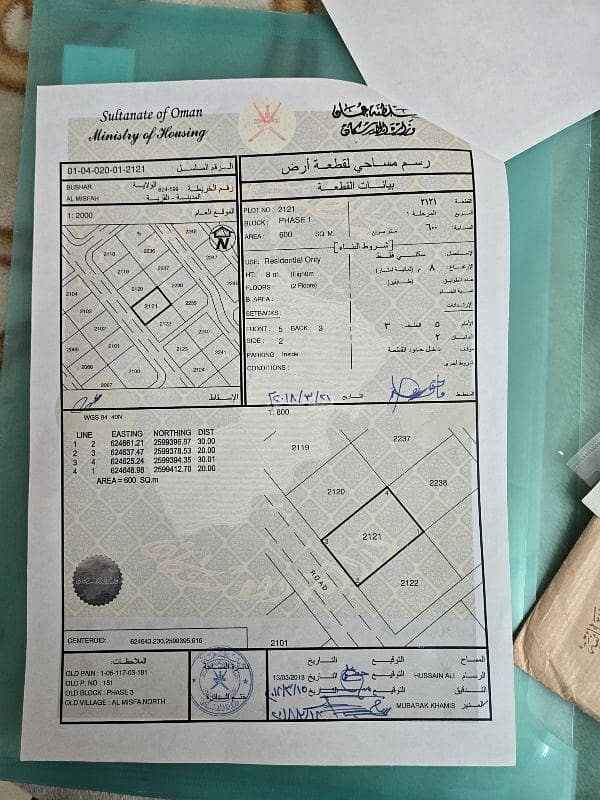 Sultanate of Oman
Ministry of Housing
سلطنة عمان
وزارة الإسكان
01-04-020-01-2121 الرقم المسلسل
BUSHAR الولاية
AL MISFAH المدينة - القرية
رقم الخريطة
1: 2000 الموقع العام
N
2248
2118
2246
2236
2120
2238
2104
2121
2103
2122
2240
2101
2237
2241
2100
2066
2067
الإسقاط
WGS 84 40N
رسم مساحي لقطعة أرض
بيانات القطعة
PLOT NO : 2121
BLOCK : PHASE 1
AREA : 600 SQ. M
القطعة ٢١٢١
المربع المرحلة ١
المساحة ٦٠٠ متر مربع
شروط البناء
USE: Residential Only
HT: 8 m. (Eight)m
FLOORS (2 Floors)
B. AREA :
SETBACKS:
FRONT : 5 BACK 3
SIDE : 2
PARKING : Inside
CONDITIONS :
الاستعمال: سكني فقط
الارتفاع: ٨ م (ثمانية أمتار)
عدد الطوابق (طابقين)
الارتدادات
الأمام ٥ الخلف ٣
الجانبان ٢
موقف: داخل حدود القطعة
شروط أخرى
المخطط:
التاريخ ٢٠١٨/٣/٢١
1: 800
LINE EASTING NORTHING DIST
1 2 624661.21 2599396.87 30.00
2 3 624637.47 2599378.53 20.00
3 4 624625.24 2599394.35 30.01
4 1 624648.98 2599412.70 20.00
AREA = 600 SQ.m
2119
2237
2120
2238
4
2121
1
3
2
2122
ROAD
2101
CENTEROID: 624643.230,2599395.616
الملاحظات:
OLD PAIN : 1-05-117-03-181
OLD P. NO : 181
OLD BLOCK : PHASE 3
OLD VILLAGE : AL MISFA NORTH
المساح التوقيع التاريخ
الرسام HUSSAIN ALI التوقيع التاريخ 13/03/2018
التدقيق التوقيع التاريخ
المدير MUBARAK KHAMIS التوقيع التاريخ